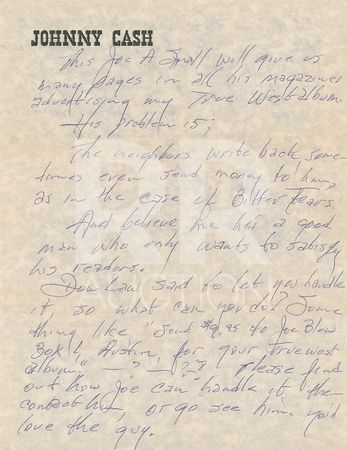 JOHNNY CASH
This Joe A Small will give us
many pages in all his magazines
advertising my True West album.
His problem is;
The neighbors write back some-
times even send money to him,
as in the case of Bitter Tears.
And believe me he's a good
man who only wants to satisfy
his readers.
Don Law said to let you handle
it, so what can you do? Some
thing like "Send $4.95 to Joe Blow
Box 1, Austin, for your true west
album." — ? — ? ? Please find
out how Joe can handle it then
contact him, or go see him. you'd
love the guy.